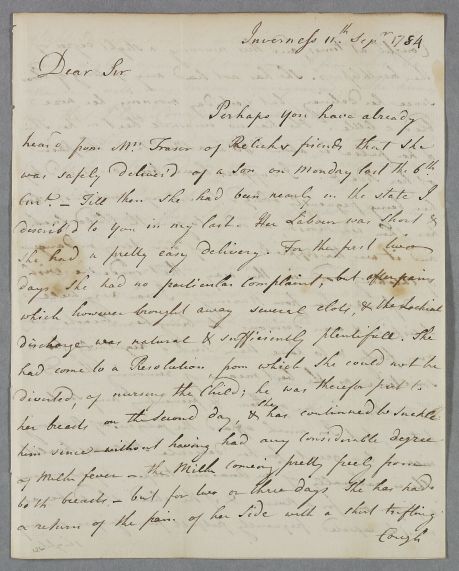 Inverness 11th Sepr 1784
Dear Sir
Perhaps you have already
heard from Mrs Fraser of Relicks friends that she
was safely deliver'd of a Son on Monday last the 6th
Curt. – Till then she had been nearly in the state I
describ'd to you in my last. Her Labour was short &
she had a pretty easy delivery. For the first two
days she had no particular complaint, but afterpains
which however brought away several clots, & the Lochial
discharge was natural & sufficiently plentifull. She
had come to a Resolution from which she could not be
diverted, of nursing the Child; he was therefor put to
her breasts on the second day, & she has continued to Suckle
him since – without having had any considerable degree
of Milk fever – the Milk coming pretty freely from
both breasts – but for two or three days She has had
a return of the pain of her Side with a short trifling
Cough